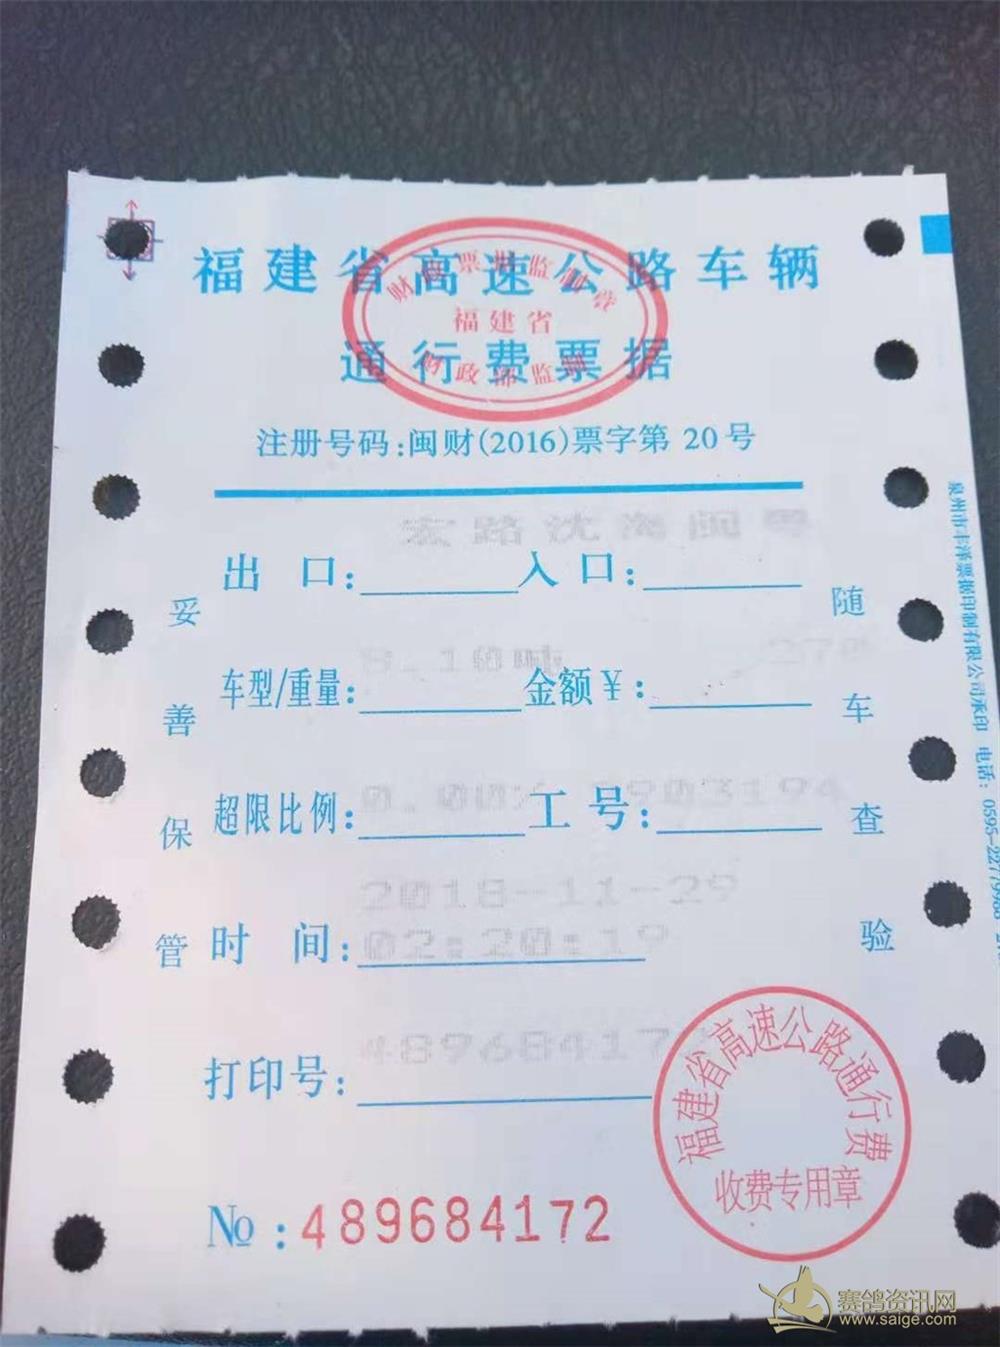 福建省高速公路车辆
通行费票据
福建省
注册号码:闽财(2016)票字第 20号
宏路沈海闽粤
出 口: 入口:
8.10吨
车型/重量: 金额¥:
0.00% 903194
超限比例: 工 号:
2018-11-29
时 间: 02:20:19
489684172
打印号:
№:489684172
妥善保管
随车查验
泉州市丰泽票据印制有限公司承印 电话:0595-22779988
福建省高速公路通行费
收费专用章
赛鸽资讯网
www.saige.com